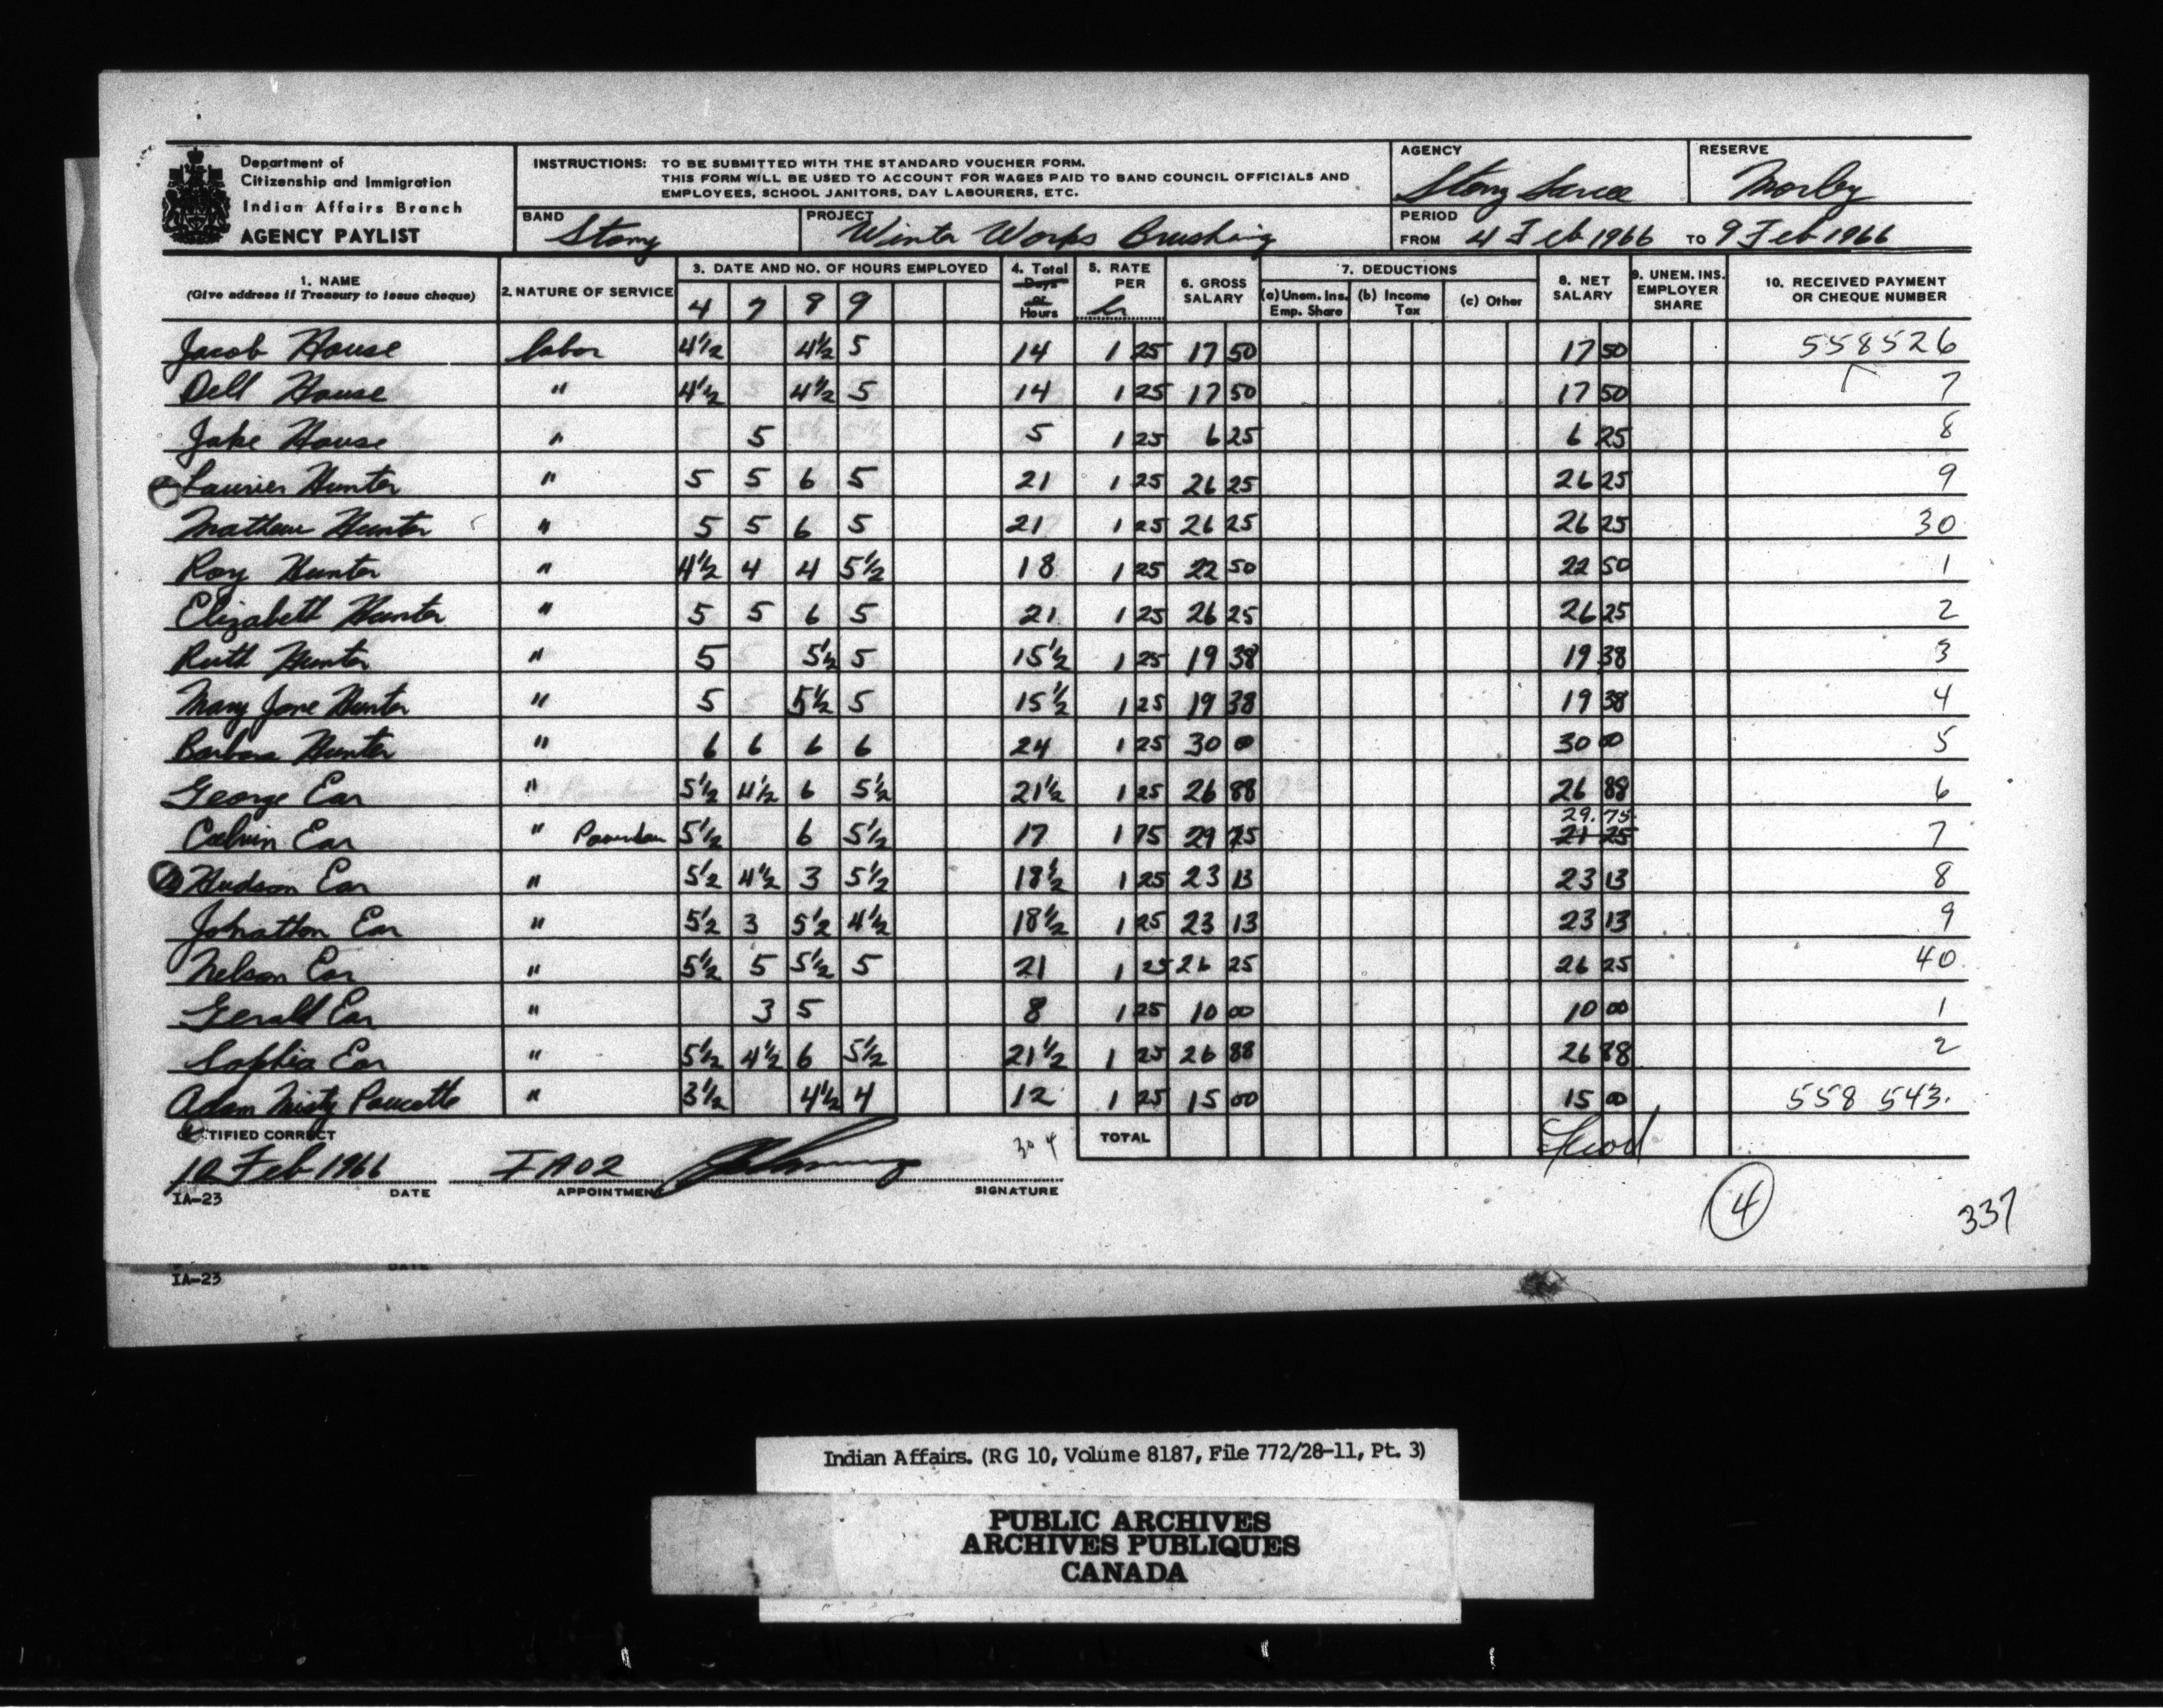 Department of
Citizenship and Immigration
Indian Affairs Branch
AGENCY PAYLIST
INSTRUCTIONS: TO BE SUBMITTED WITH THE STANDARD VOUCHER FORM.
THIS FORM WILL BE USED TO ACCOUNT FOR WAGES PAID TO BAND COUNCIL OFFICIALS AND
EMPLOYEES, SCHOOL JANITORS, DAY LABOURERS, ETC.
AGENCY Stony Sarcee
RESERVE Morley
BAND Stony
PROJECT Winter Works Brushing
PERIOD
FROM 4 Feb 1966 TO 9 Feb 1966
1. NAME
(Give address if Treasury to issue cheque)
2. NATURE OF SERVICE
3. DATE AND NO. OF HOURS EMPLOYED
4 7 8 9
4. Total Days or Hours
5. RATE PER hr
6. GROSS SALARY
7. DEDUCTIONS
(a) Unem. Ins. Emp. Share
(b) Income Tax
(c) Other
8. NET SALARY
9. UNEM. INS. EMPLOYER SHARE
10. RECEIVED PAYMENT OR CHEQUE NUMBER
Jacob House labor 4½ 4½ 5 14 1 25 17 50 17 50 558526
Dell House " 4½ 4½ 5 14 1 25 17 50 17 50 7
Jake House " 5 5 1 25 6 25 6 25 8
Laurier Hunter " 5 5 6 5 21 1 25 26 25 26 25 9
Mathew Hunter " 5 5 6 5 21 1 25 26 25 26 25 30
Roy Hunter " 4½ 4 4 5½ 18 1 25 22 50 22 50 1
Elizabeth Hunter " 5 5 6 5 21 1 25 26 25 26 25 2
Ruth Hunter " 5 5½ 5 15½ 1 25 19 38 19 38 3
Mary Jane Hunter " 5 5½ 5 15½ 1 25 19 38 19 38 4
Barbara Hunter " 6 6 6 6 24 1 25 30 00 30 00 5
George Ear " 5½ 4½ 6 5½ 21½ 1 25 26 88 26 88 6
Calvin Ear " 5½ 6 5½ 17 1 75 29 75 29.75 21 25 7
Hudson Ear " 5½ 4½ 3 5½ 18½ 1 25 23 13 23 13 8
Johnatton Ear " 5½ 3 5½ 4½ 18½ 1 25 23 13 23 13 9
Nelson Ear " 5½ 5 5½ 5 21 1 25 26 25 26 25 40
Gerald Ear " 3 5 8 1 25 10 00 10 00 1
Sophia Ear " 5½ 4½ 6 5½ 21½ 1 25 26 88 26 88 2
Adam Misty Poucette " 3½ 4½ 4 12 1 25 15 00 15 00 558 543.
CERTIFIED CORRECT
304
TOTAL
10 Feb 1966 IA02
DATE APPOINTMENT SIGNATURE
IA-23
4
337
IA-23
DATE
Indian Affairs. (RG 10, Volume 8187, File 772/28-11, Pt. 3)
PUBLIC ARCHIVES
ARCHIVES PUBLIQUES
CANADA